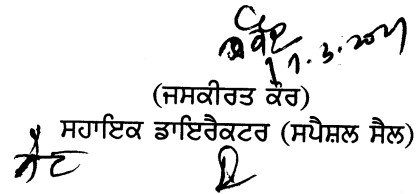 17.3.2021
(ਜਸਕੀਰਤ ਕੌਰ)
ਸਹਾਇਕ ਡਾਇਰੈਕਟਰ (ਸਪੈਸ਼ਲ ਸੈਲ)